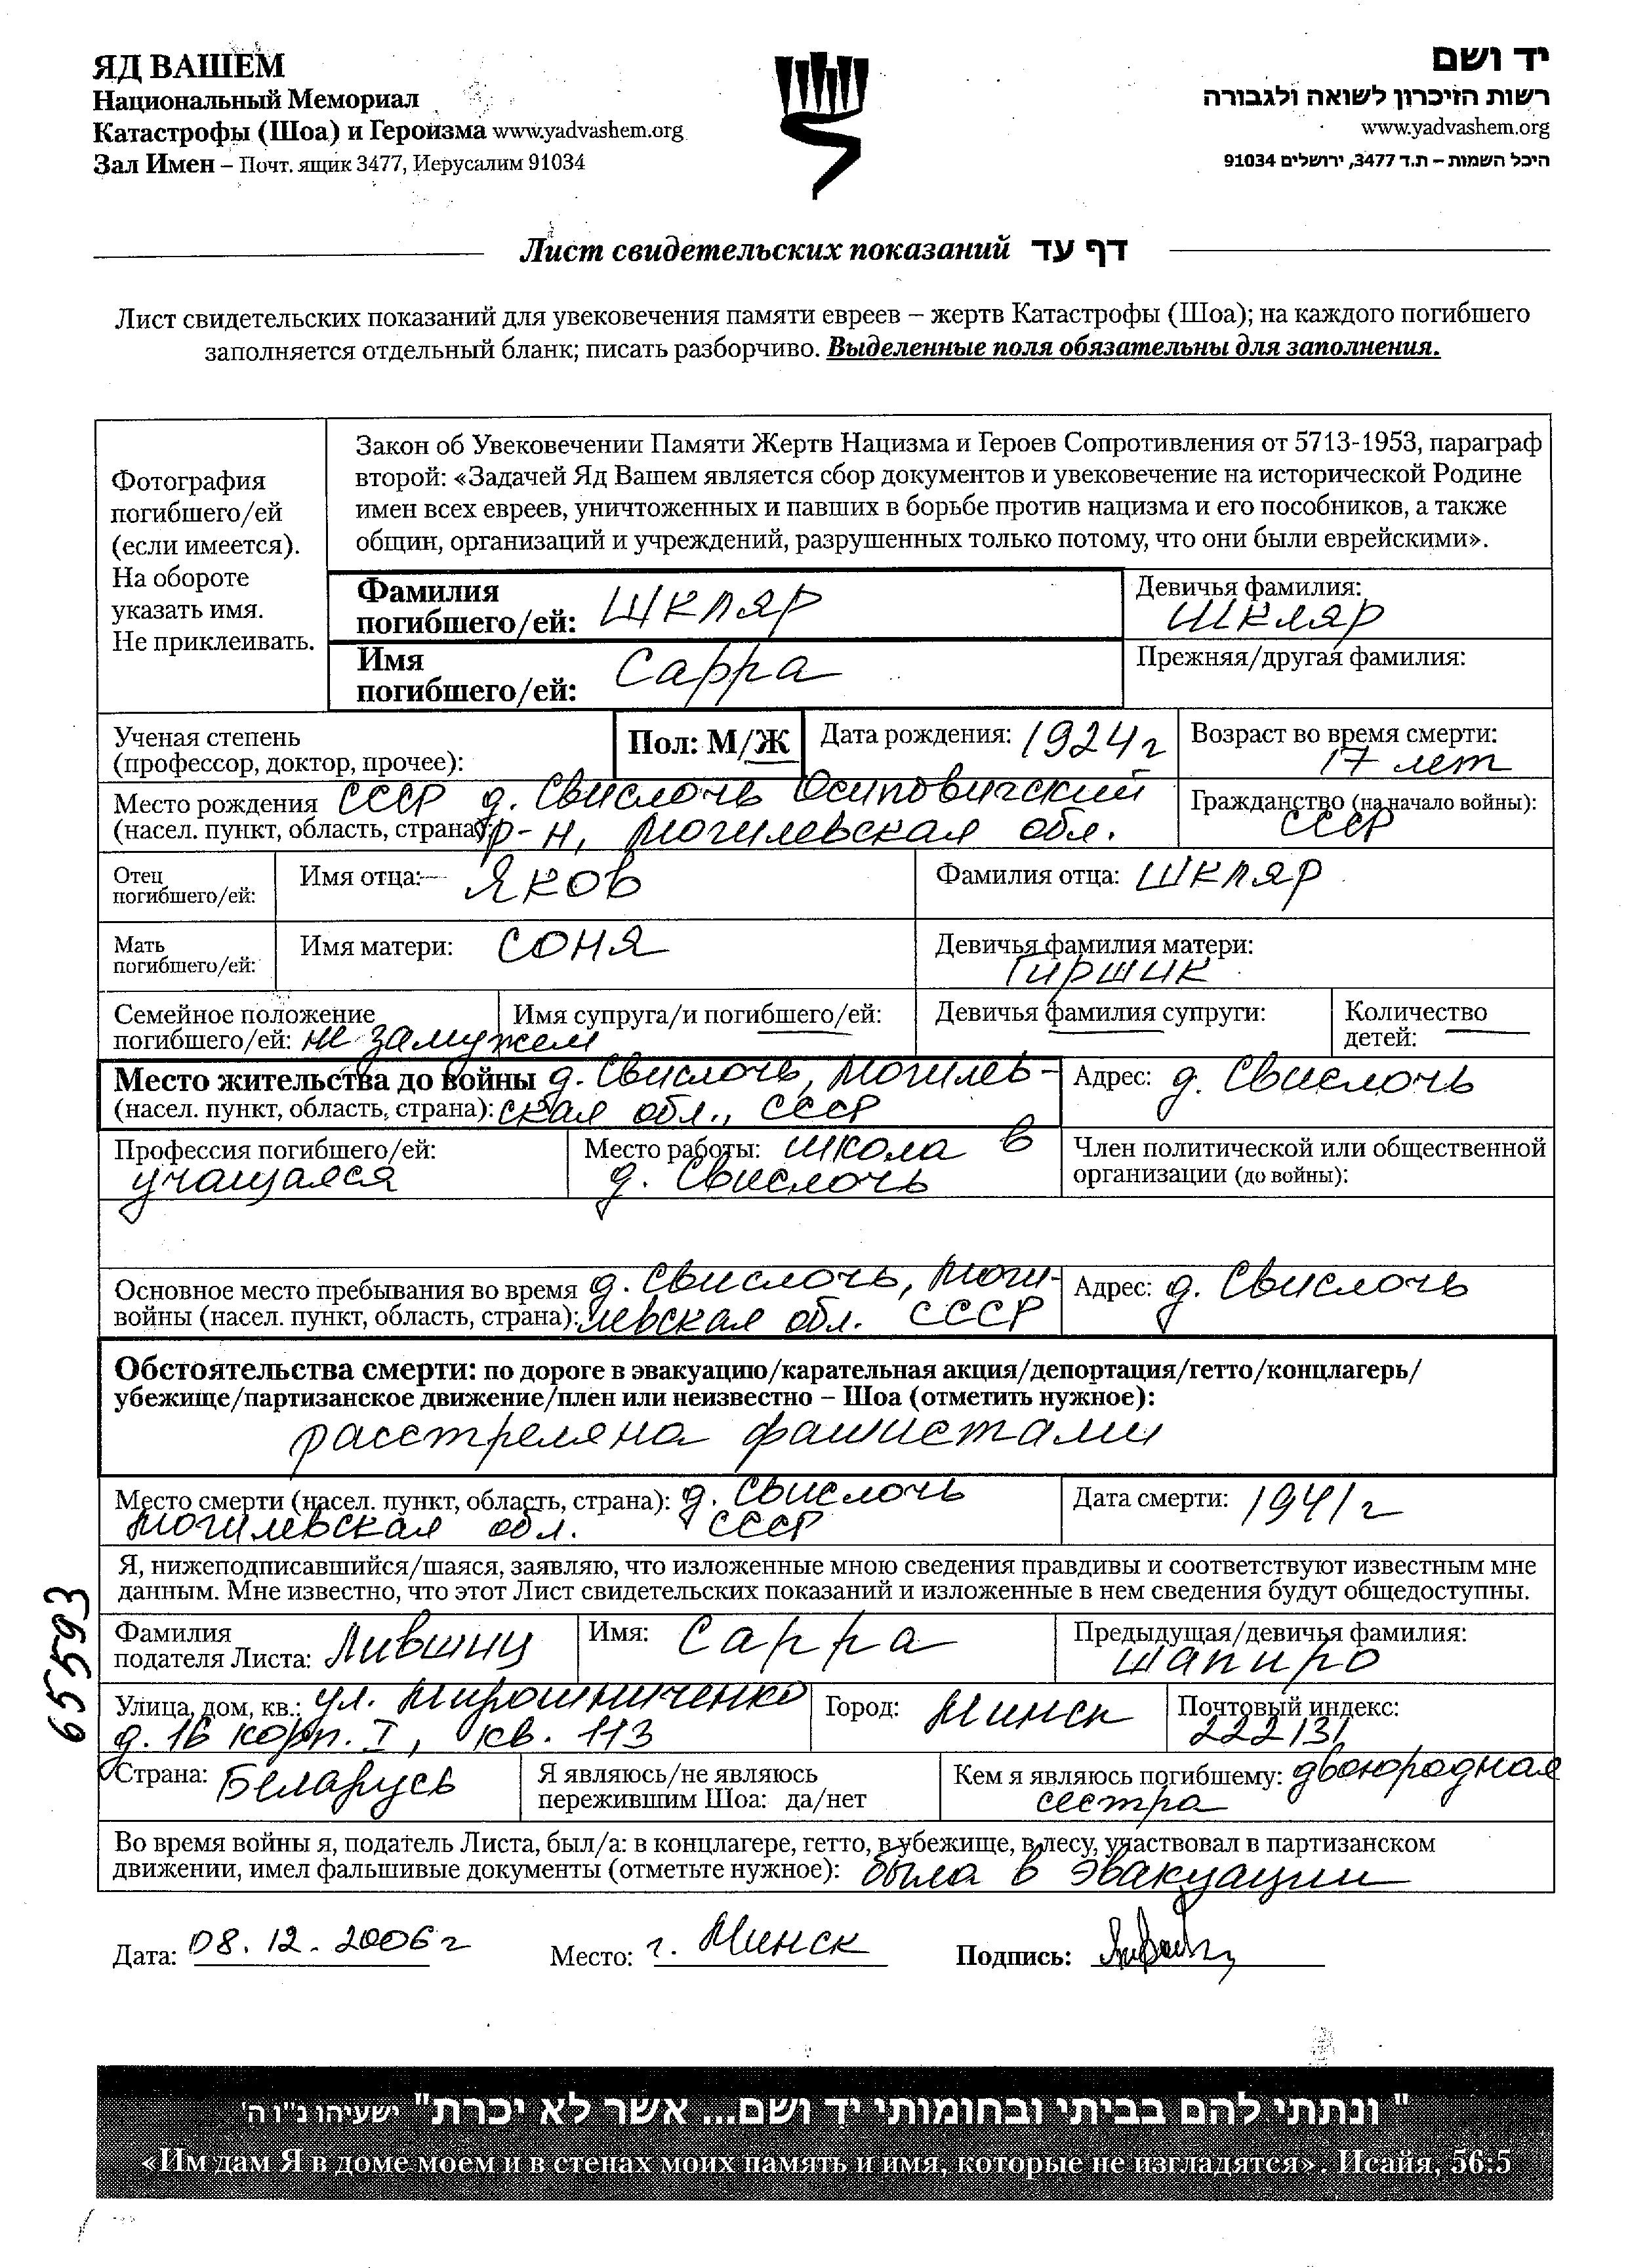 ЯД ВАШЕМ
Национальный Мемориал
Катастрофы (Шоа) и Героизма www.yadvashem.org
Зал Имен – Почт. ящик 3477, Иерусалим 91034
יד ושם
רשות הזיכרון לשואה ולגבורה
www.yadvashem.org
היכל השמות – ת.ד 3477, ירושלים 91034
Лист свидетельских показаний דף עד
Лист свидетельских показаний для увековечения памяти евреев – жертв Катастрофы (Шоа); на каждого погибшего
заполняется отдельный бланк; писать разборчиво. Выделенные поля обязательны для заполнения.
Фотография
погибшего/ей
(если имеется).
На обороте
указать имя.
Не приклеивать.
Закон об Увековечении Памяти Жертв Нацизма и Героев Сопротивления от 5713-1953, параграф
второй: «Задачей Яд Вашем является сбор документов и увековечение на исторической Родине
имен всех евреев, уничтоженных и павших в борьбе против нацизма и его пособников, а также
общин, организаций и учреждений, разрушенных только потому, что они были еврейскими».
Фамилия
погибшего/ей: Шкляр
Девичья фамилия:
Шкляр
Имя
погибшего/ей: Сарра
Прежняя/другая фамилия:
Ученая степень
(профессор, доктор, прочее):
Пол: М/Ж
Дата рождения: 1924 г
Возраст во время смерти:
17 лет
Место рождения СССР д. Свислочь Осиповичский
(насел. пункт, область, страна) р-н, Могилевская обл.
Гражданство (на начало войны):
СССР
Отец
погибшего/ей:
Имя отца: Яков
Фамилия отца: Шкляр
Мать
погибшего/ей:
Имя матери: Соня
Девичья фамилия матери:
Гиршик
Семейное положение
погибшего/ей: не замужем
Имя супруга/и погибшего/ей:
Девичья фамилия супруги:
Количество
детей:
Место жительства до войны д. Свислочь, Могилев-
(насел. пункт, область, страна): ская обл., СССР
Адрес: д. Свислочь
Профессия погибшего/ей:
учащаяся
Место работы: школа в
д. Свислочь
Член политической или общественной
организации (до войны):
Основное место пребывания во время д. Свислочь, Моги-
войны (насел. пункт, область, страна): левская обл. СССР
Адрес: д. Свислочь
Обстоятельства смерти: по дороге в эвакуацию/карательная акция/депортация/гетто/концлагерь/
убежище/партизанское движение/плен или неизвестно – Шоа (отметить нужное):
расстреляна фашистами
Место смерти (насел. пункт, область, страна): д. Свислочь
Могилевская обл. СССР
Дата смерти: 1941 г
Я, нижеподписавшийся/шаяся, заявляю, что изложенные мною сведения правдивы и соответствуют известным мне
данным. Мне известно, что этот Лист свидетельских показаний и изложенные в нем сведения будут общедоступны.
65593
Фамилия
подателя Листа: Лившиц
Имя: Сарра
Предыдущая/девичья фамилия:
Шапиро
Улица, дом, кв.: ул. Мирошниченко
д. 16 корп. I, кв. 113
Город: Минск
Почтовый индекс:
222131
Страна: Беларусь
Я являюсь/не являюсь
пережившим Шоа: да/нет
Кем я являюсь погибшему: двоюродная
сестра
Во время войны я, податель Листа, был/а: в концлагере, гетто, в убежище, в лесу, участвовал в партизанском
движении, имел фальшивые документы (отметьте нужное): была в эвакуации
Дата: 08.12.2006 г
Место: г. Минск
Подпись:
"ונתתי להם בביתי ובחומותי יד ושם... אשר לא יכרת" ישעיהו נ"ו ה'
«Им дам Я в доме моем и в стенах моих память и имя, которые не изгладятся». Исайя, 56:5